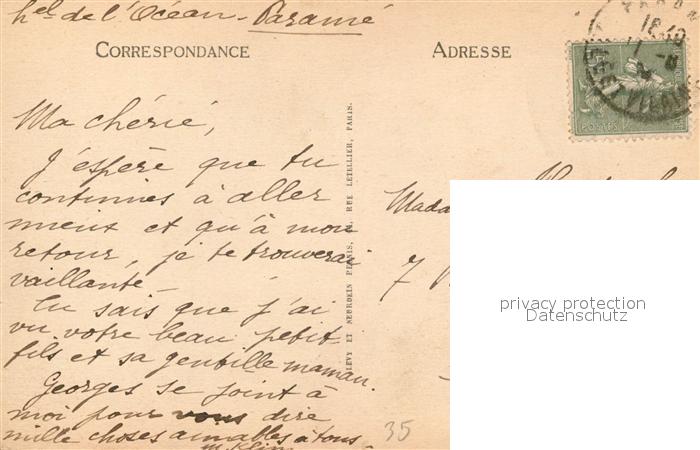 hel de l'Océan - Paramé
CORRESPONDANCE
ADRESSE
Ma chérie,
J'espère que tu
continues à aller
mieux et qu'à mon
retour, je te trouverai
vaillante
Tu sais que j'ai
vu votre beau petit
fils et sa gentille maman.
Georges se joint à
moi pour vous dire
mille choses aimables à tous
M. Klein
LEVY ET NEURDEIN REUNIS, RUE LETELLIER, PARIS.
POSTES
Mada
7
35
privacy protection
Datenschutz